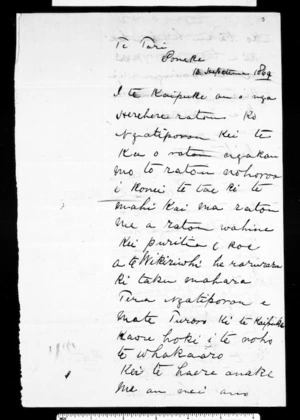 Te Tari
Poneke
16 Hepetema 1869
I te Kaipuke au o nga
Herehere ratou ko
Ngatiporou Kei te
Kii o ratou ngakau
mo to ratou nohoroa
i konei te tae ki te
mahi Kai ma ratou
me a ratou wahine
Kei puritia e koe
a te Wikiriwhi he raruraru
ki taku mahara
Tera Ngatiporou e
mate Turoro Ki te Kaipuke
Kaore hoki i te noho
te whakaaro
Kei te haere anake
me au nei ano